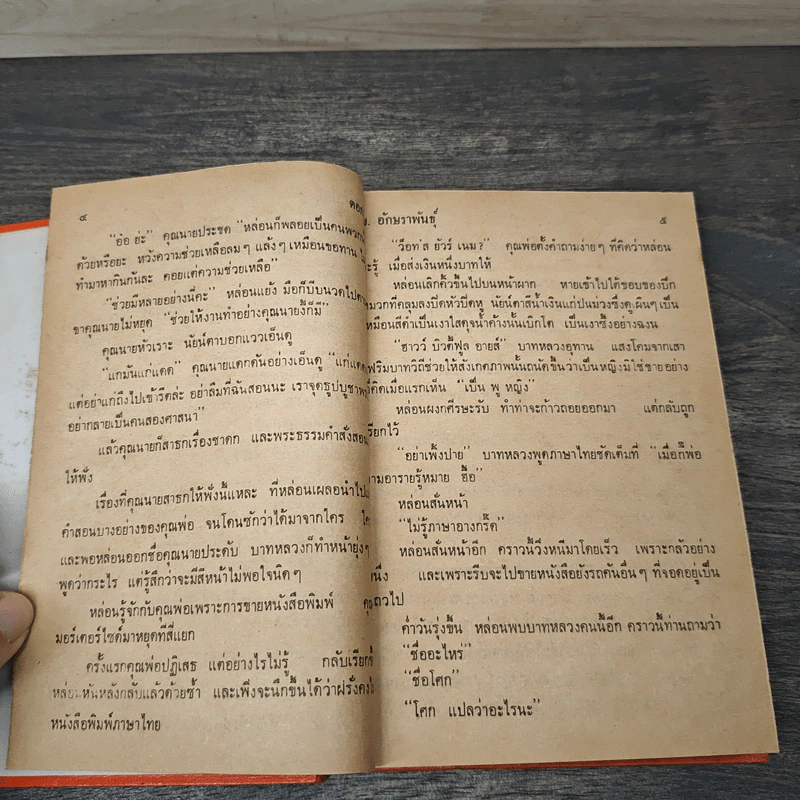 ๔
“อ้อ ย่ะ” คุณนายประชด “หล่อนก็พลอยเป็นคนพวก
ด้วยหรือยะ หวังความช่วยเหลือลมๆ แล้งๆ เหมือนขอทาน
ทำมาหากินกันละ คอยแต่ความช่วยเหลือ”
“ช่วยมีหลายอย่างนี่คะ” หล่อนแย้ง มือก็บีบนวดไปตาม
ขาคุณนายไม่หยุด “ช่วยให้งานทำอย่างคุณนายงี้ก็มี”
คุณนายหัวเราะ นัยน์ตาบอกแววเอ็นดู
“แก่มันแก่แดด” คุณนายแดกดันอย่างเอ็นดู “แก่แดด
แต่อย่าแก่ถึงไปเข้ารีตล่ะ อย่าลืมที่ฉันสอนนะ เราจุดธูปบูชาพระ
อย่ากลายเป็นคนสองศาสนา”
แล้วคุณนายก็สาธกเรื่องชาดก และพระธรรมคำสั่งสอน
ให้ฟัง
เรื่องที่คุณนายสาธกให้ฟังนี้แหละ ที่หล่อนเผลอนำไป
คำสอนบางอย่างของคุณพ่อ จนโดนซักว่าได้มาจากใคร
และพอหล่อนออกชื่อคุณนายประดับ บาทหลวงก็ทำหน้ายุ่งๆ
พูดว่ากระไร แต่รู้สึกว่าจะมีสีหน้าไม่พอใจนิดๆ
หล่อนรู้จักกับคุณพ่อเพราะการขายหนังสือพิมพ์
มอร์เตอร์ไซด์มาหยุดที่สี่แยก
ครั้งแรกคุณพ่อปฏิเสธ แต่อย่างไรไม่รู้ กลับเรียก
หล่อนหันหลังกลับแล้วด้วยซ้ำ และเพิ่งจะนึกขึ้นได้ว่าฝรั่งคง
หนังสือพิมพ์ภาษาไทย
. อักษราพันธุ์ ๕
“ว็อท'ส ยัวร์ เนม?” คุณพ่อตั้งคำถามง่ายๆ ที่คิดว่าหล่อน
จะรู้ เมื่อส่งเงินหนึ่งบาทให้
หล่อนเลิกคิ้วขึ้นไปบนหน้าผาก หายเข้าไปใต้ขอบของปีก
หมวกที่คลุมลงปิดหัวปิดหู นัยน์ตาสีน้ำเงินแก่ปนม่วงซึ่งดูเผินๆ เป็น
เหมือนสีดำเป็นเงาใสดุจน้ำค้างนั้นเบิกโต เป็นเงาซึ้งอย่างฉงน
“ฮาวว์ บิวตี้ฟูล อายส์” บาทหลวงอุทาน แสงโคมจากเสา
ริมบาทวิถีช่วยให้สังเกตภาพนั้นถนัดขึ้นว่าเป็นหญิงมิใช่ชายอย่าง
ที่คิดเมื่อแรกเห็น “เป็น พู หญิง”
หล่อนผงกศีรษะรับ ทำท่าจะก้าวถอยออกมา แต่กลับถูก
เรียกไว้
“อย่าเพ้งปาย” บาทหลวงพูดภาษาไทยชัดเต็มที่ “เมื่อกี๊พ่อ
ถามอารายรู้หมาย ฮื้อ”
หล่อนสั่นหน้า
“ไม่รู้ภาษาอางกรี๊ด”
หล่อนสั่นหน้าอีก คราวนี้วิ่งหนีมาโดยเร็ว เพราะกลัวอย่าง
หนึ่ง และเพราะรีบจะไปขายหนังสือยังรถคันอื่นๆ ที่จอดอยู่เป็น
แถวไป
ค่ำวันรุ่งขึ้น หล่อนพบบาทหลวงคนนี้อีก คราวนี้ท่านถามว่า
“ชื่ออะไหร่”
“ชื่อโศก”
“โศก แปลว่าอะไรนะ”